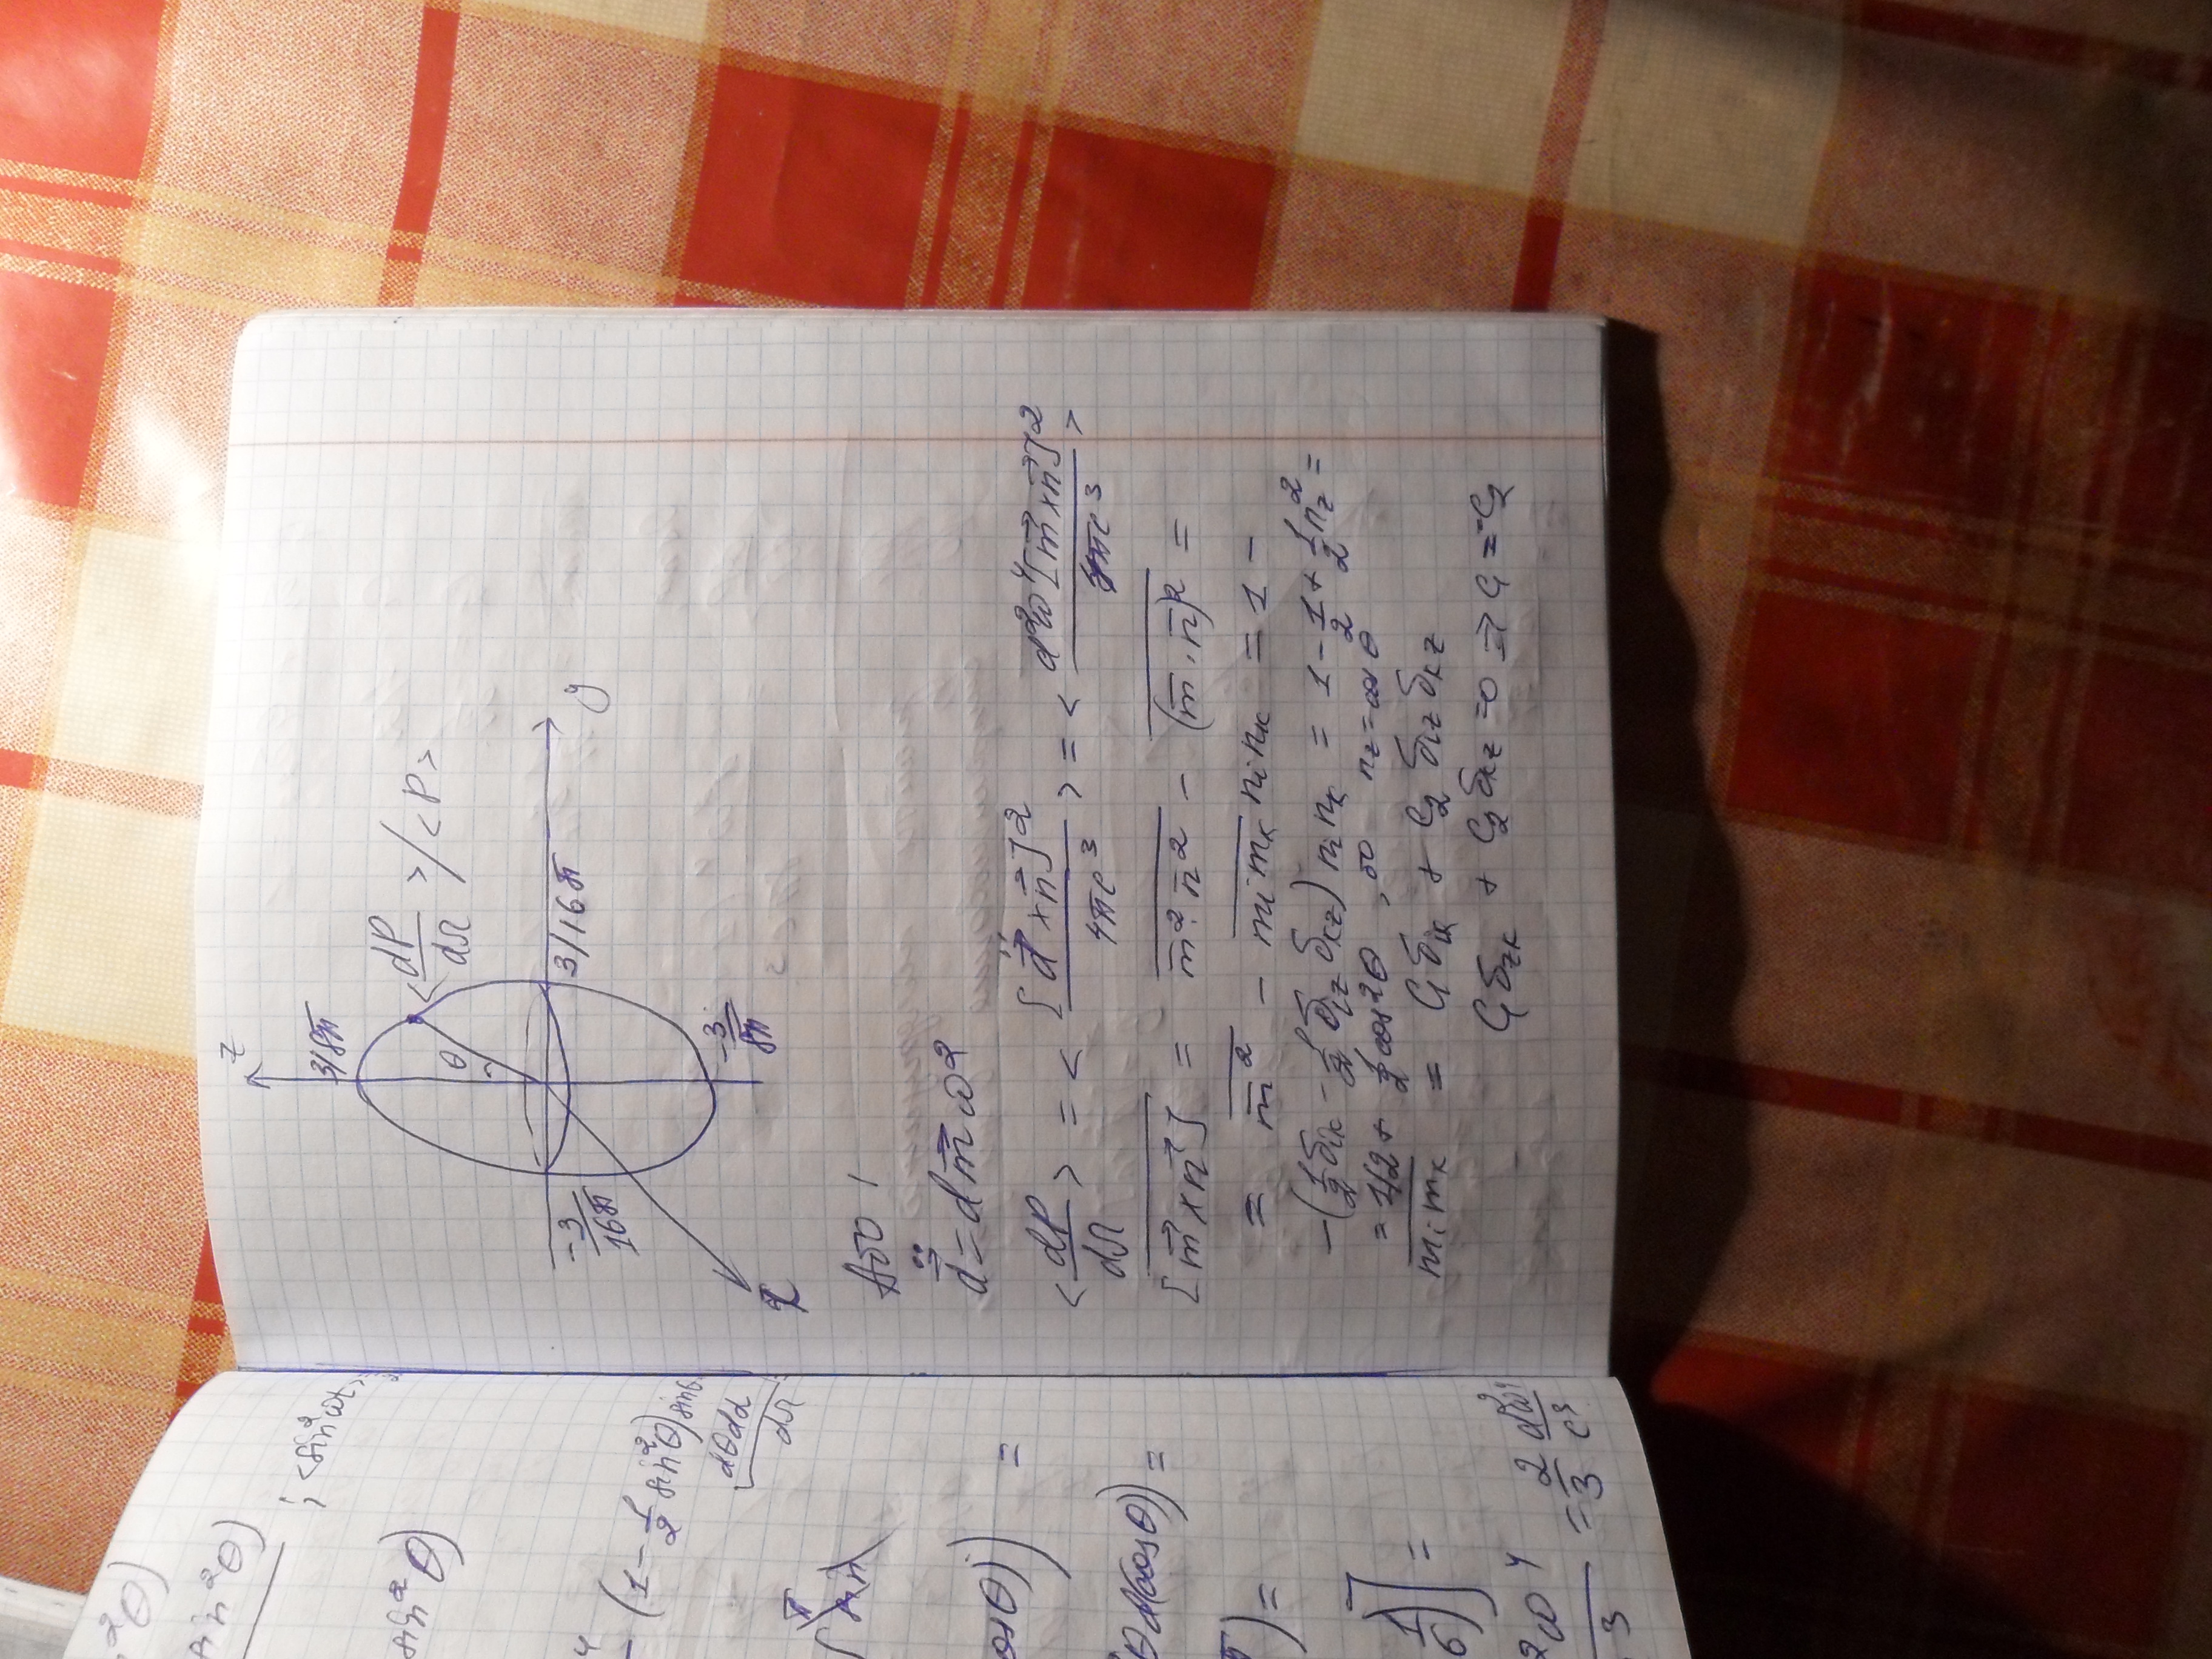 z
3/8π
<dP/dΩ>/<P>
θ
3/16π
y
-3/16π
-3/8π
x
Або!
d̈⃗ = d m⃗ ω²
<dP/dΩ> = <[d̈⃗ × n⃗]²/4πc³> = <d²ω⁴[m⃗×n⃗]²/4πc³>
[m⃗×n⃗] = m²·n² - (m⃗·n⃗)² =
= m² - mᵢmₖ nᵢnₖ = 1 -
- (1/2 δᵢₖ - 1/2 δᵢz δₖz) nᵢ nₖ = 1 - 1/2 + 1/2 n_z² =
= 1/2 + 1/2 cos²θ, бо n_z = cos θ
mᵢmₖ = C₁δᵢₖ + C₂ δᵢz δₖz
C₁δzₖ + C₂δₖz = 0 => C₁ = -C₂
²θ)
sin²θ)
; <sin²ωt>
sin²θ)
(1 - 1/2 sin²θ) sinθ
dθdα
dΩ
cosθ)) =
θd(cosθ)) =
) =
1/6)] =
²ω⁴/3 = 2/3 d²ω⁴/c³